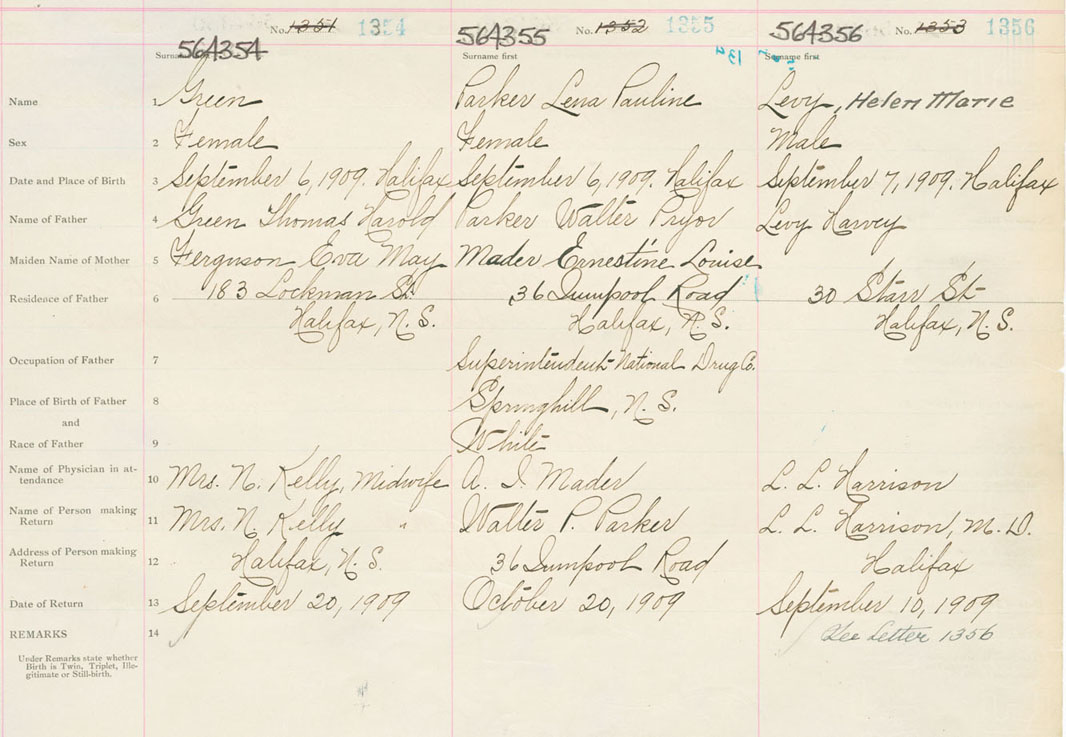 No. 1351 1354 No. 1352 1355 No. 1353 1356
564354 564355 564356
Surname first Surname first
Name 1 Green Parker Lena Pauline Levy, Helen Marie
Sex 2 Female Female Male
Date and Place of Birth 3 September 6, 1909. Halifax September 6, 1909. Halifax September 7, 1909. Halifax
Name of Father 4 Green Thomas Harold Parker Walter Pryor Levy Harvey
Maiden Name of Mother 5 Ferguson Eva May Mader Ernestine Louise
Residence of Father 6 183 Lockman St. 36 Road 30 Starr St
Halifax, N. S. Halifax, N. S. Halifax, N. S.
Occupation of Father 7 Superintendent National Drug Co.
Place of Birth of Father 8 Springhill, N. S.
and
Race of Father 9 White
Name of Physician in at-
tendance 10 Mrs. N. Kelly, Midwife A. I. Mader L. L. Harrison
Name of Person making
Return 11 Mrs. N. Kelly " Walter P. Parker L. L. Harrison, M. D.
Address of Person making
Return 12 Halifax, N. S. 36 Road Halifax
Date of Return 13 September 20, 1909 October 20, 1909 September 10, 1909
REMARKS 14 See Letter 1356
Under Remarks state whether
Birth is Twin, Triplet, Ille-
gitimate or Still-birth.